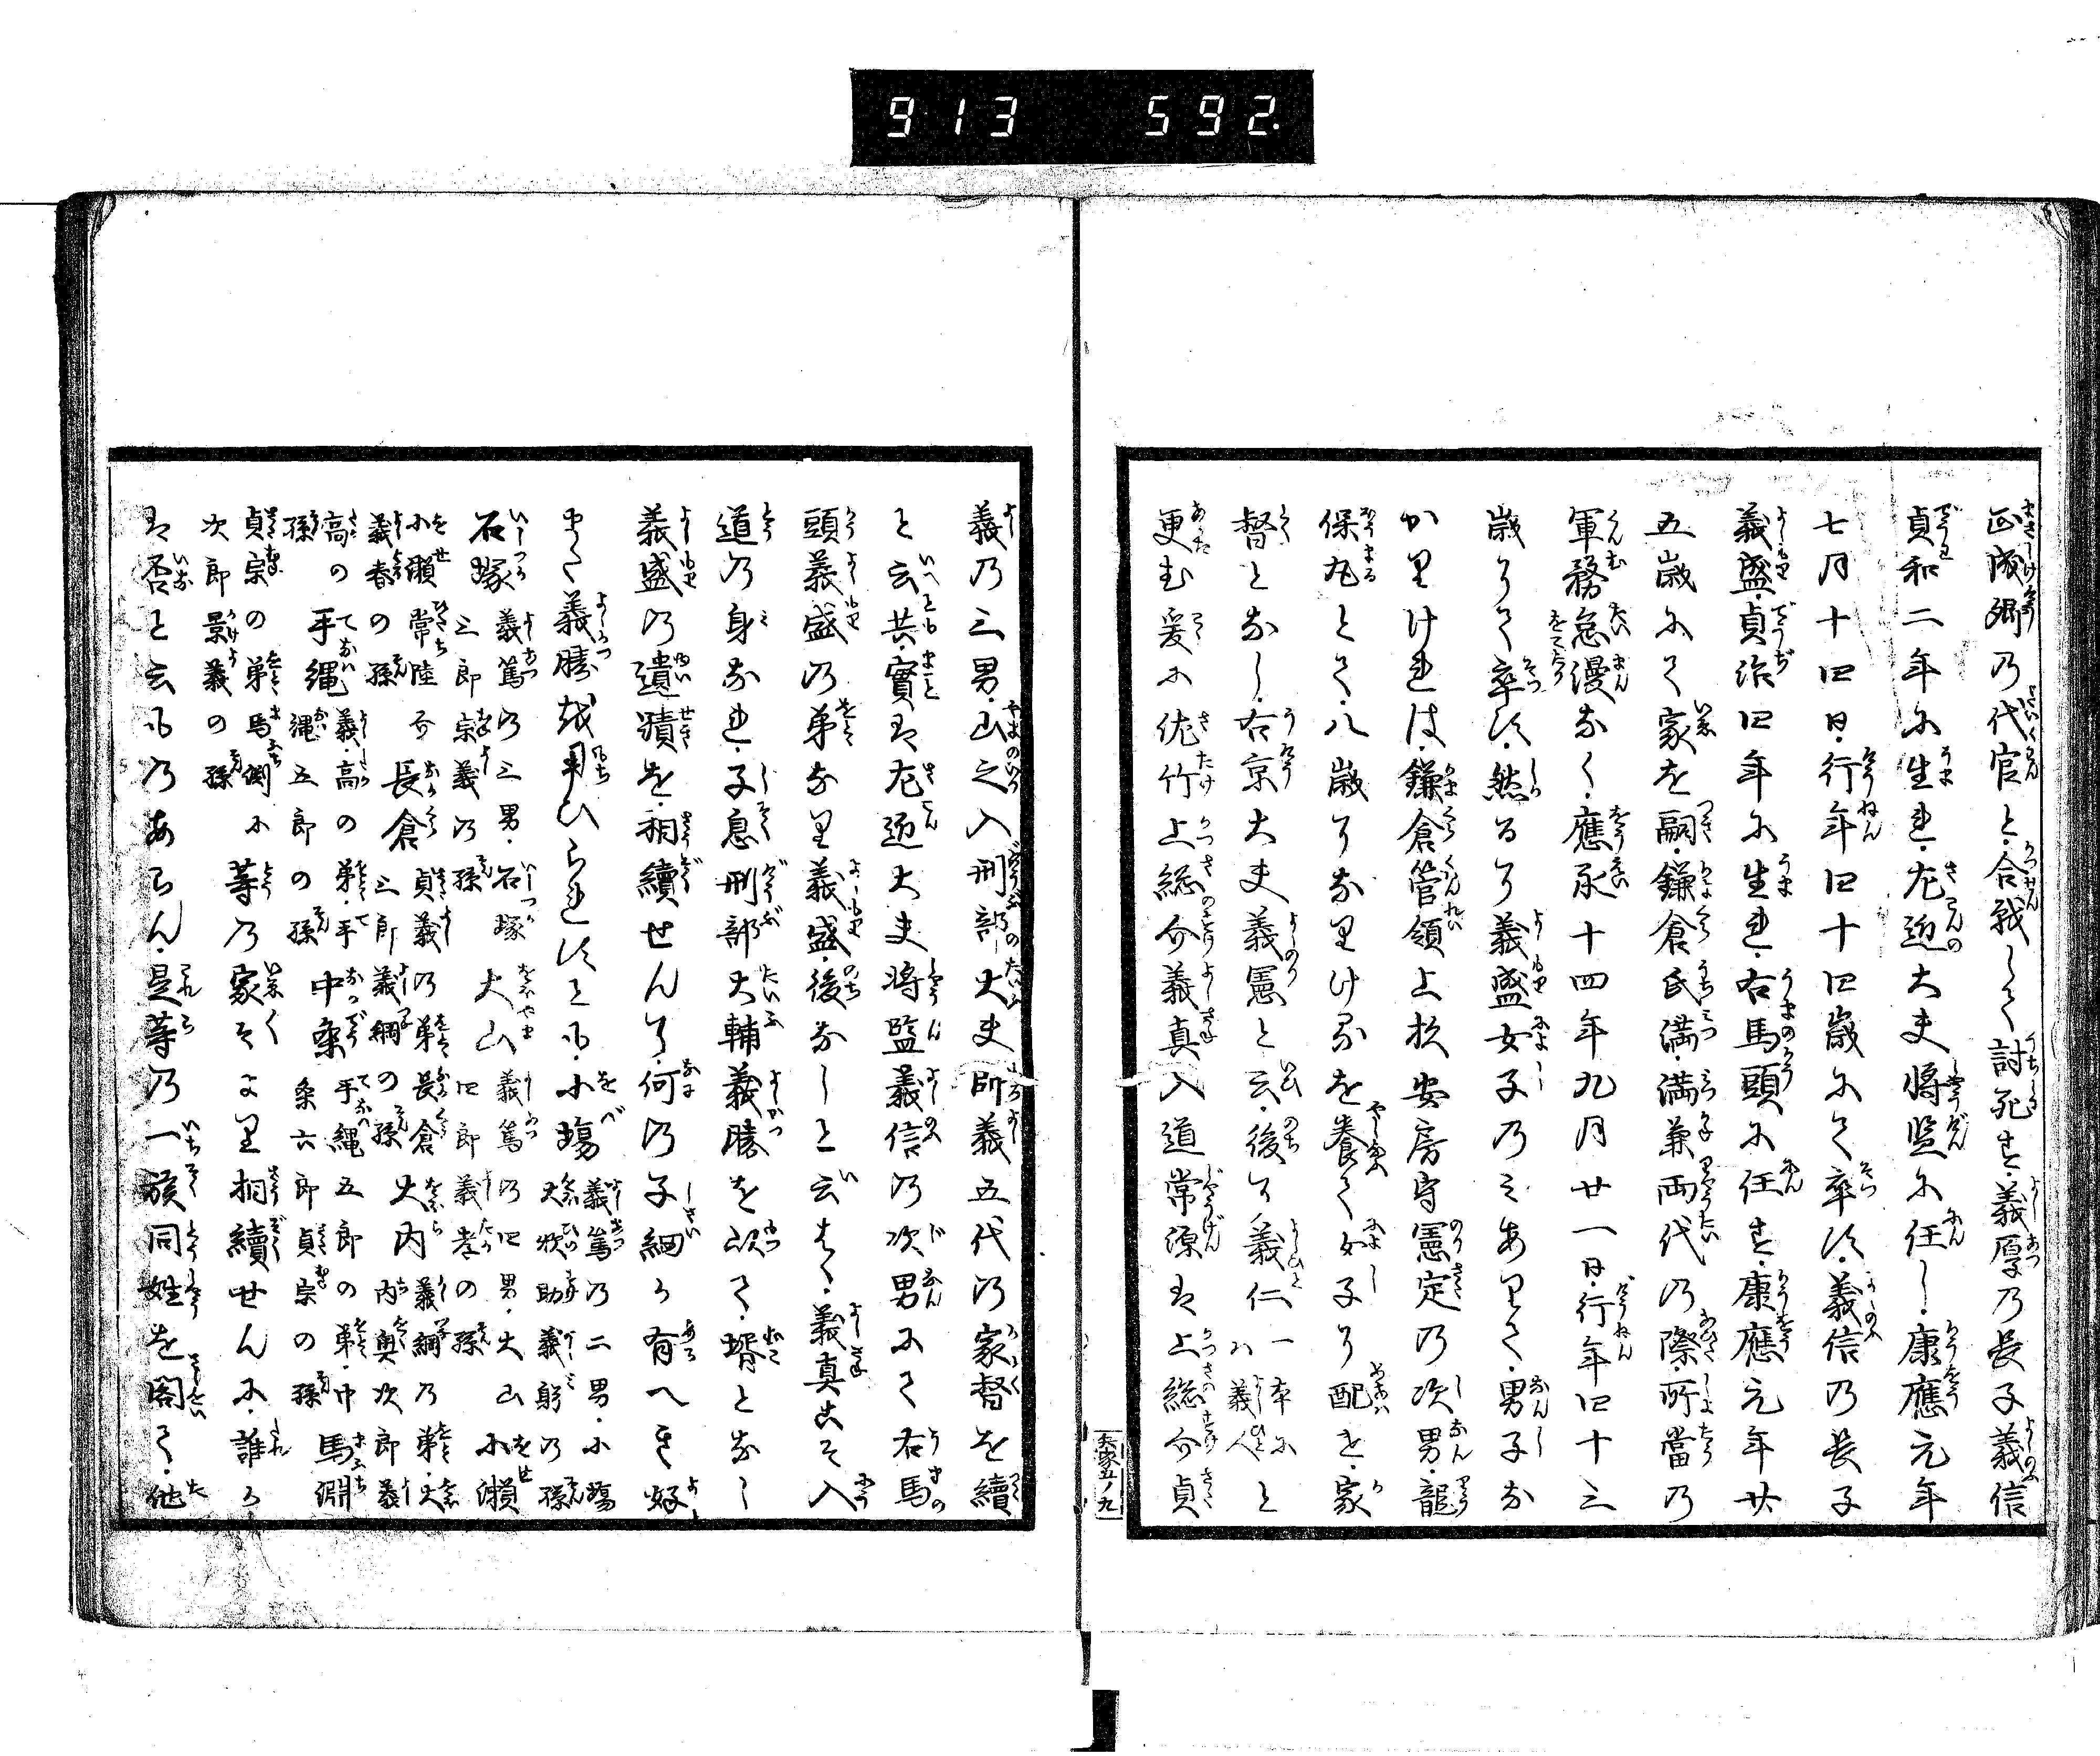 913 592.
正成卿乃代官と・合戦して討死す・義厚乃長子義信
貞和二年に生れ・左近大夫将監に任し・康應元年
七月十四日・行年四十四歳にて卒す・義信乃長子
義盛・貞治四年に生れ・右馬頭に任す・康應元年廿
五歳にて家を嗣・鎌倉氏満・満兼両代乃際・所當乃
軍務怠慢なく・應永十四年九月廿一日・行年四十三
歳にて卒す・然るに義盛女子乃みありて・男子な
かりければ・鎌倉管領上杦安房守憲定乃次男・龍
保丸とて・八歳になりけるを養て女子に配せ・家
督となし・右京大夫義憲と云・後に義仁一本にハ義人と
更む爰に佐竹上総介義真入道常源は上総介貞
矣家五ノ九
義乃三男・山之入刑部大夫師義五代の家督を續
と云共・實は左近大夫将監義信の次男にて右馬
頭義盛の弟なり義盛・後なしと云はく・義真こそ入
道の身なれ・子息刑部大輔・義勝を以て・壻となし
義盛の遺蹟を・相續せんに・何の子細か有へき好
まく義勝越用ひられすとも・小瑒義篤の二男・小瑒大炊助義躬の孫
石塚義篤の三男・石塚三郎宗義の孫大山義篤の四男・大山四郎義孝の孫小瀬
小瀬常陸介義春の孫長倉貞義の弟長倉三郎義綱の孫大内義綱乃弟・大内奥次郎義
高の孫手縄義高の弟・手縄五郎の孫中条手縄五郎の弟・中条六郎貞宗の孫馬渊
貞宗の弟馬渕次郎景義の孫に等乃家そより相續せんに・誰か
は否と云ものあらん・是等乃一族同姓を閣て・他